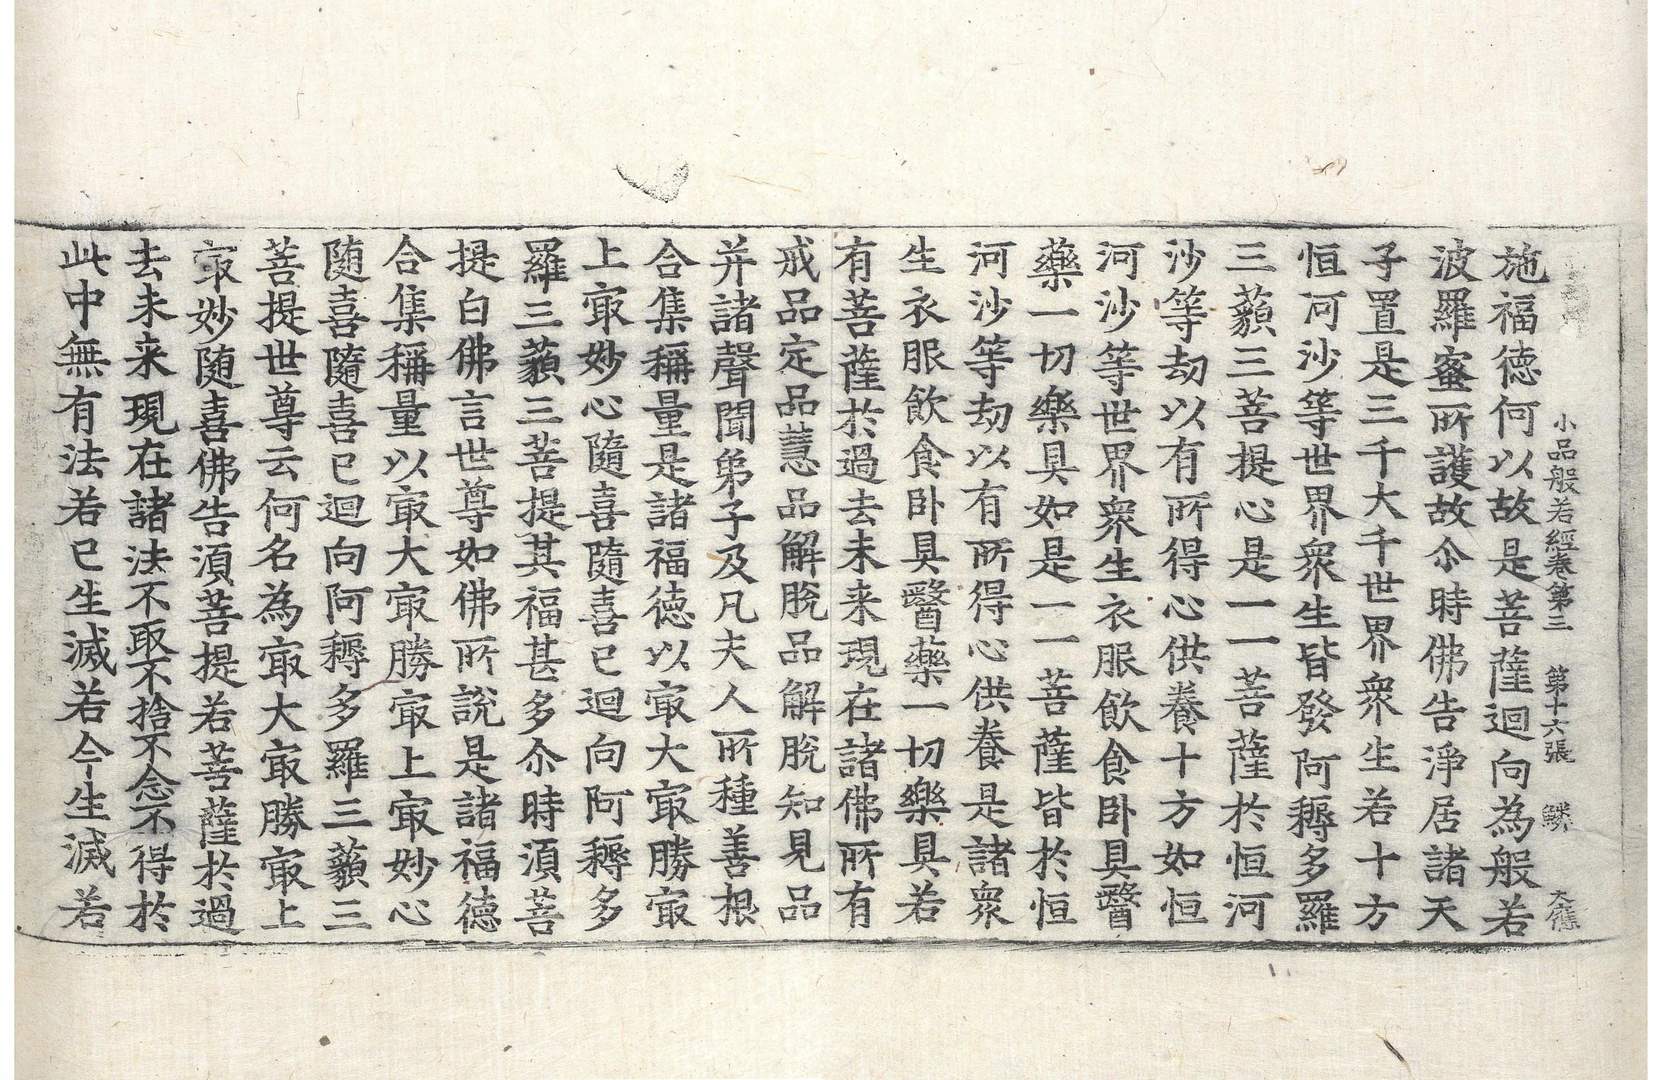 小品般若經卷第三 第十六張 鱗
施福德何以故是菩薩迴向為般若
波羅蜜所護故尒時佛告淨居諸天
子置是三千大千世界衆生若十方
恒河沙等世界衆生皆發阿耨多羅
三藐三菩提心是一一菩薩於恒河
沙等劫以有所得心供養十方如恒
河沙等世界衆生衣服飲食卧具醫
藥一切樂具如是一一菩薩皆於恒
河沙等劫以有所得心供養是諸衆
生衣服飲食卧具醫藥一切樂具若
有菩薩於過去未来現在諸佛所有
戒品定品慧品解脫品解脫知見品
并諸聲聞弟子及凡夫人所種善根
合集稱量是諸福徳以㝡大㝡勝㝡
上㝡妙心隨喜隨喜已迴向阿耨多
羅三藐三菩提其福甚多尒時湏菩
提白佛言世尊如佛所說是諸福德
合集稱量以㝡大㝡勝㝡上㝡妙心
随喜隨喜已迴向阿耨多羅三藐三
菩提世尊云何名為㝡大㝡勝㝡上
㝡妙随喜佛告湏菩提若菩薩於過
去未来現在諸法不取不捨不念不得於
此中無有法若已生滅若今生滅若